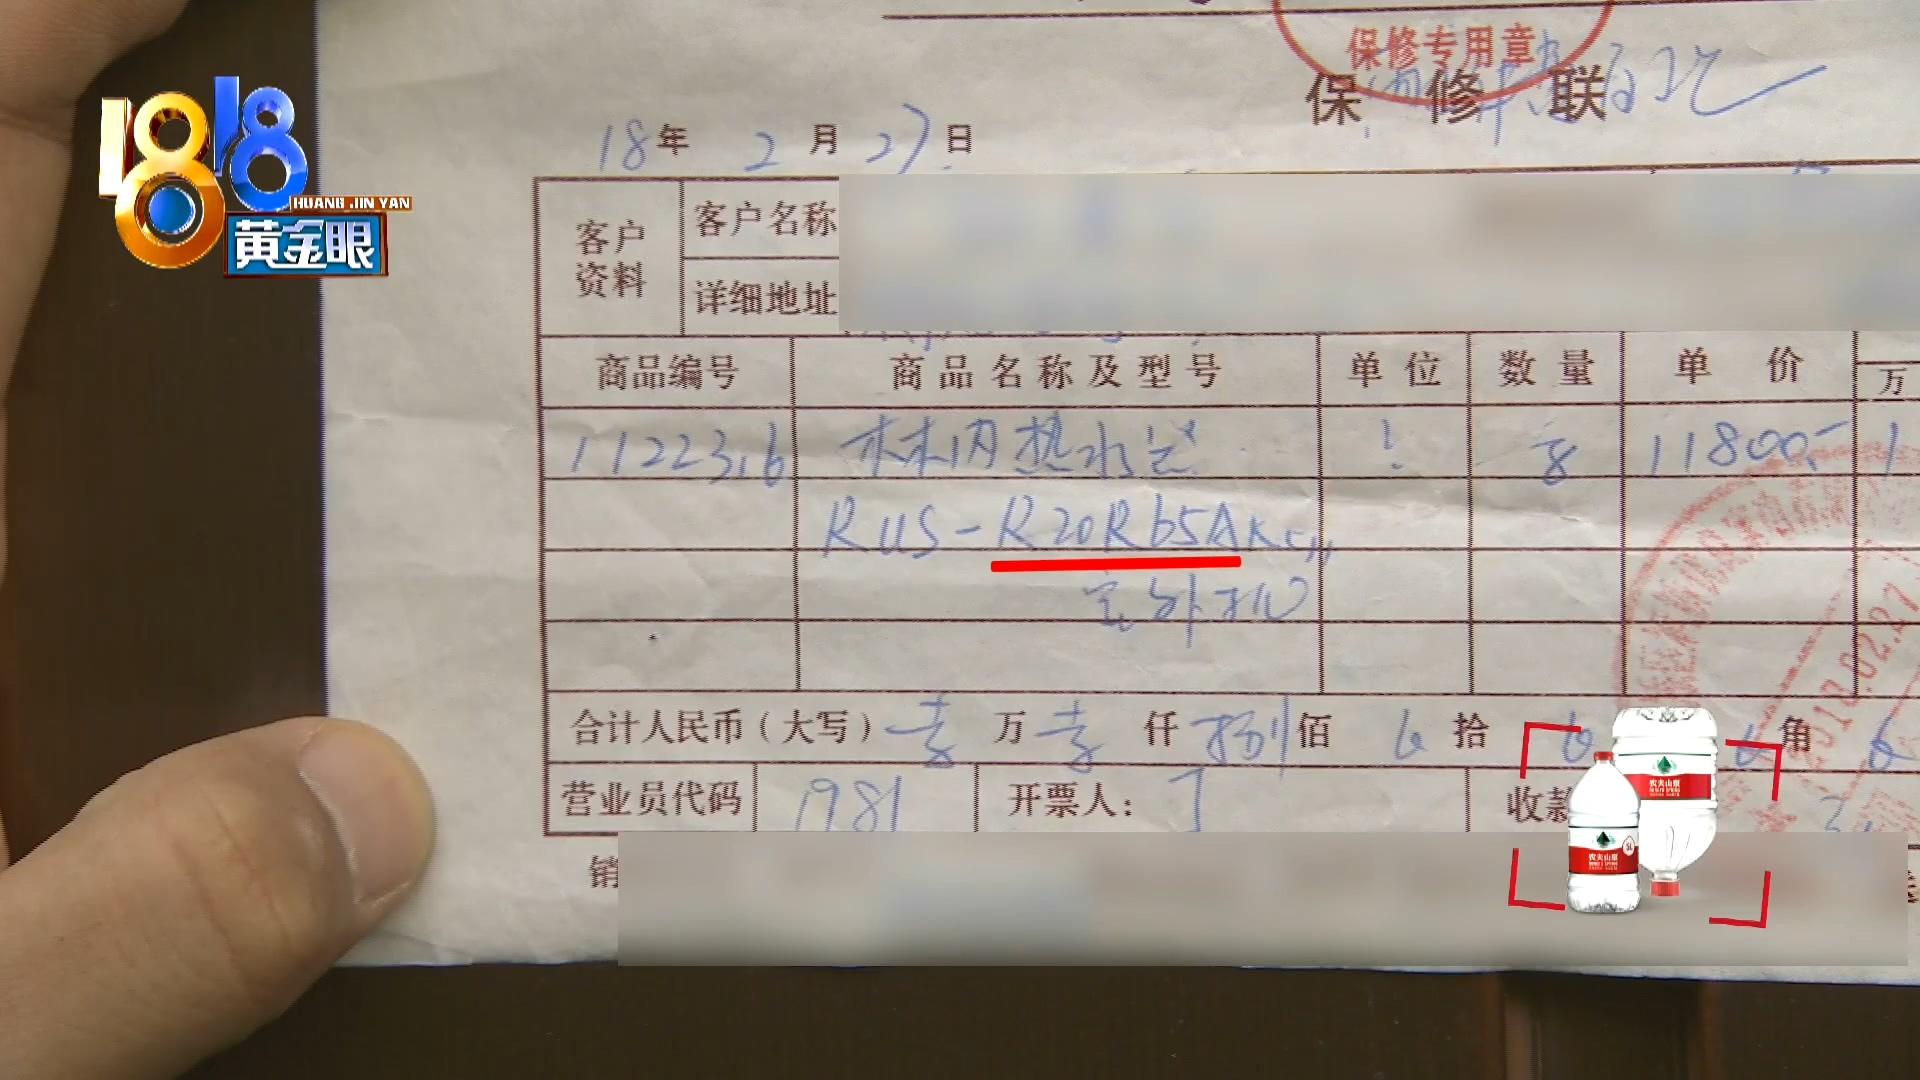 保修专用章
保修联
18年2月27日
1818
HUANG JIN YAN
黄金眼
客户资料 客户名称
详细地址
商品编号 商品名称及型号 单位 数量 单价 万
112236 林内热水器 1 11800.- 1
RUS-R20R65A
室外机
合计人民币(大写) 壹万壹仟捌佰 拾 角
营业员代码 1981 开票人: 收款
销
农夫山泉
农夫山泉
5L